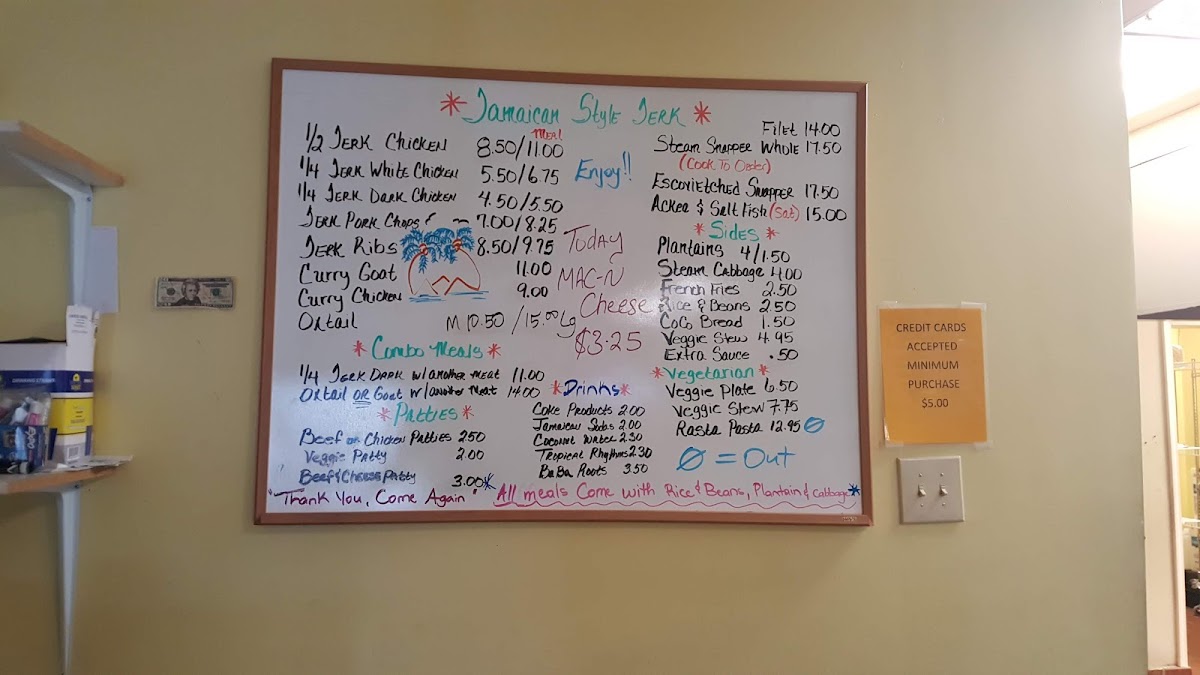 * Jamaican Style Jerk *
Meal
1/2 Jerk Chicken 8.50/11.00
1/4 Jerk White Chicken 5.50/6.75
1/4 Jerk Dark Chicken 4.50/5.50
Jerk Pork Chops 7.00/8.25
Jerk Ribs 8.50/9.75
Curry Goat 11.00
Curry Chicken 9.00
Oxtail M 10.50 / 15.00 Lg
* Combo Meals *
1/4 Jerk Dark w/another meat 11.00
Oxtail or Goat w/another meat 14.00
* Patties *
Beef or Chicken Patties 2.50
Veggie Patty 2.00
Beef & Cheese Patty 3.00*
"Thank You, Come Again"
Enjoy!!
Today
Mac-N
Cheese
$3.25
* Drinks *
Coke Products 2.00
Jamaican Sodas 2.00
Coconut Water 2.50
Tropical Rhythms 2.30
BaBa Roots 3.50
Filet 14.00
Steam Snapper Whole 17.50
(Cook To Order)
Escovietched Snapper 17.50
Ackea & Salt Fish (Sat) 15.00
* Sides *
Plantains 4/1.50
Steam Cabbage 4.00
French Fries 2.50
Rice & Beans 2.50
CoCo Bread 1.50
Veggie Stew 4.95
Extra Sauce .50
* Vegetarian *
Veggie Plate 6.50
Veggie Stew 7.75
Rasta Pasta 12.95 Ø
Ø = Out
All meals Come with Rice & Beans, Plantain & Cabbage*
CREDIT CARDS
ACCEPTED
MINIMUM
PURCHASE
$5.00